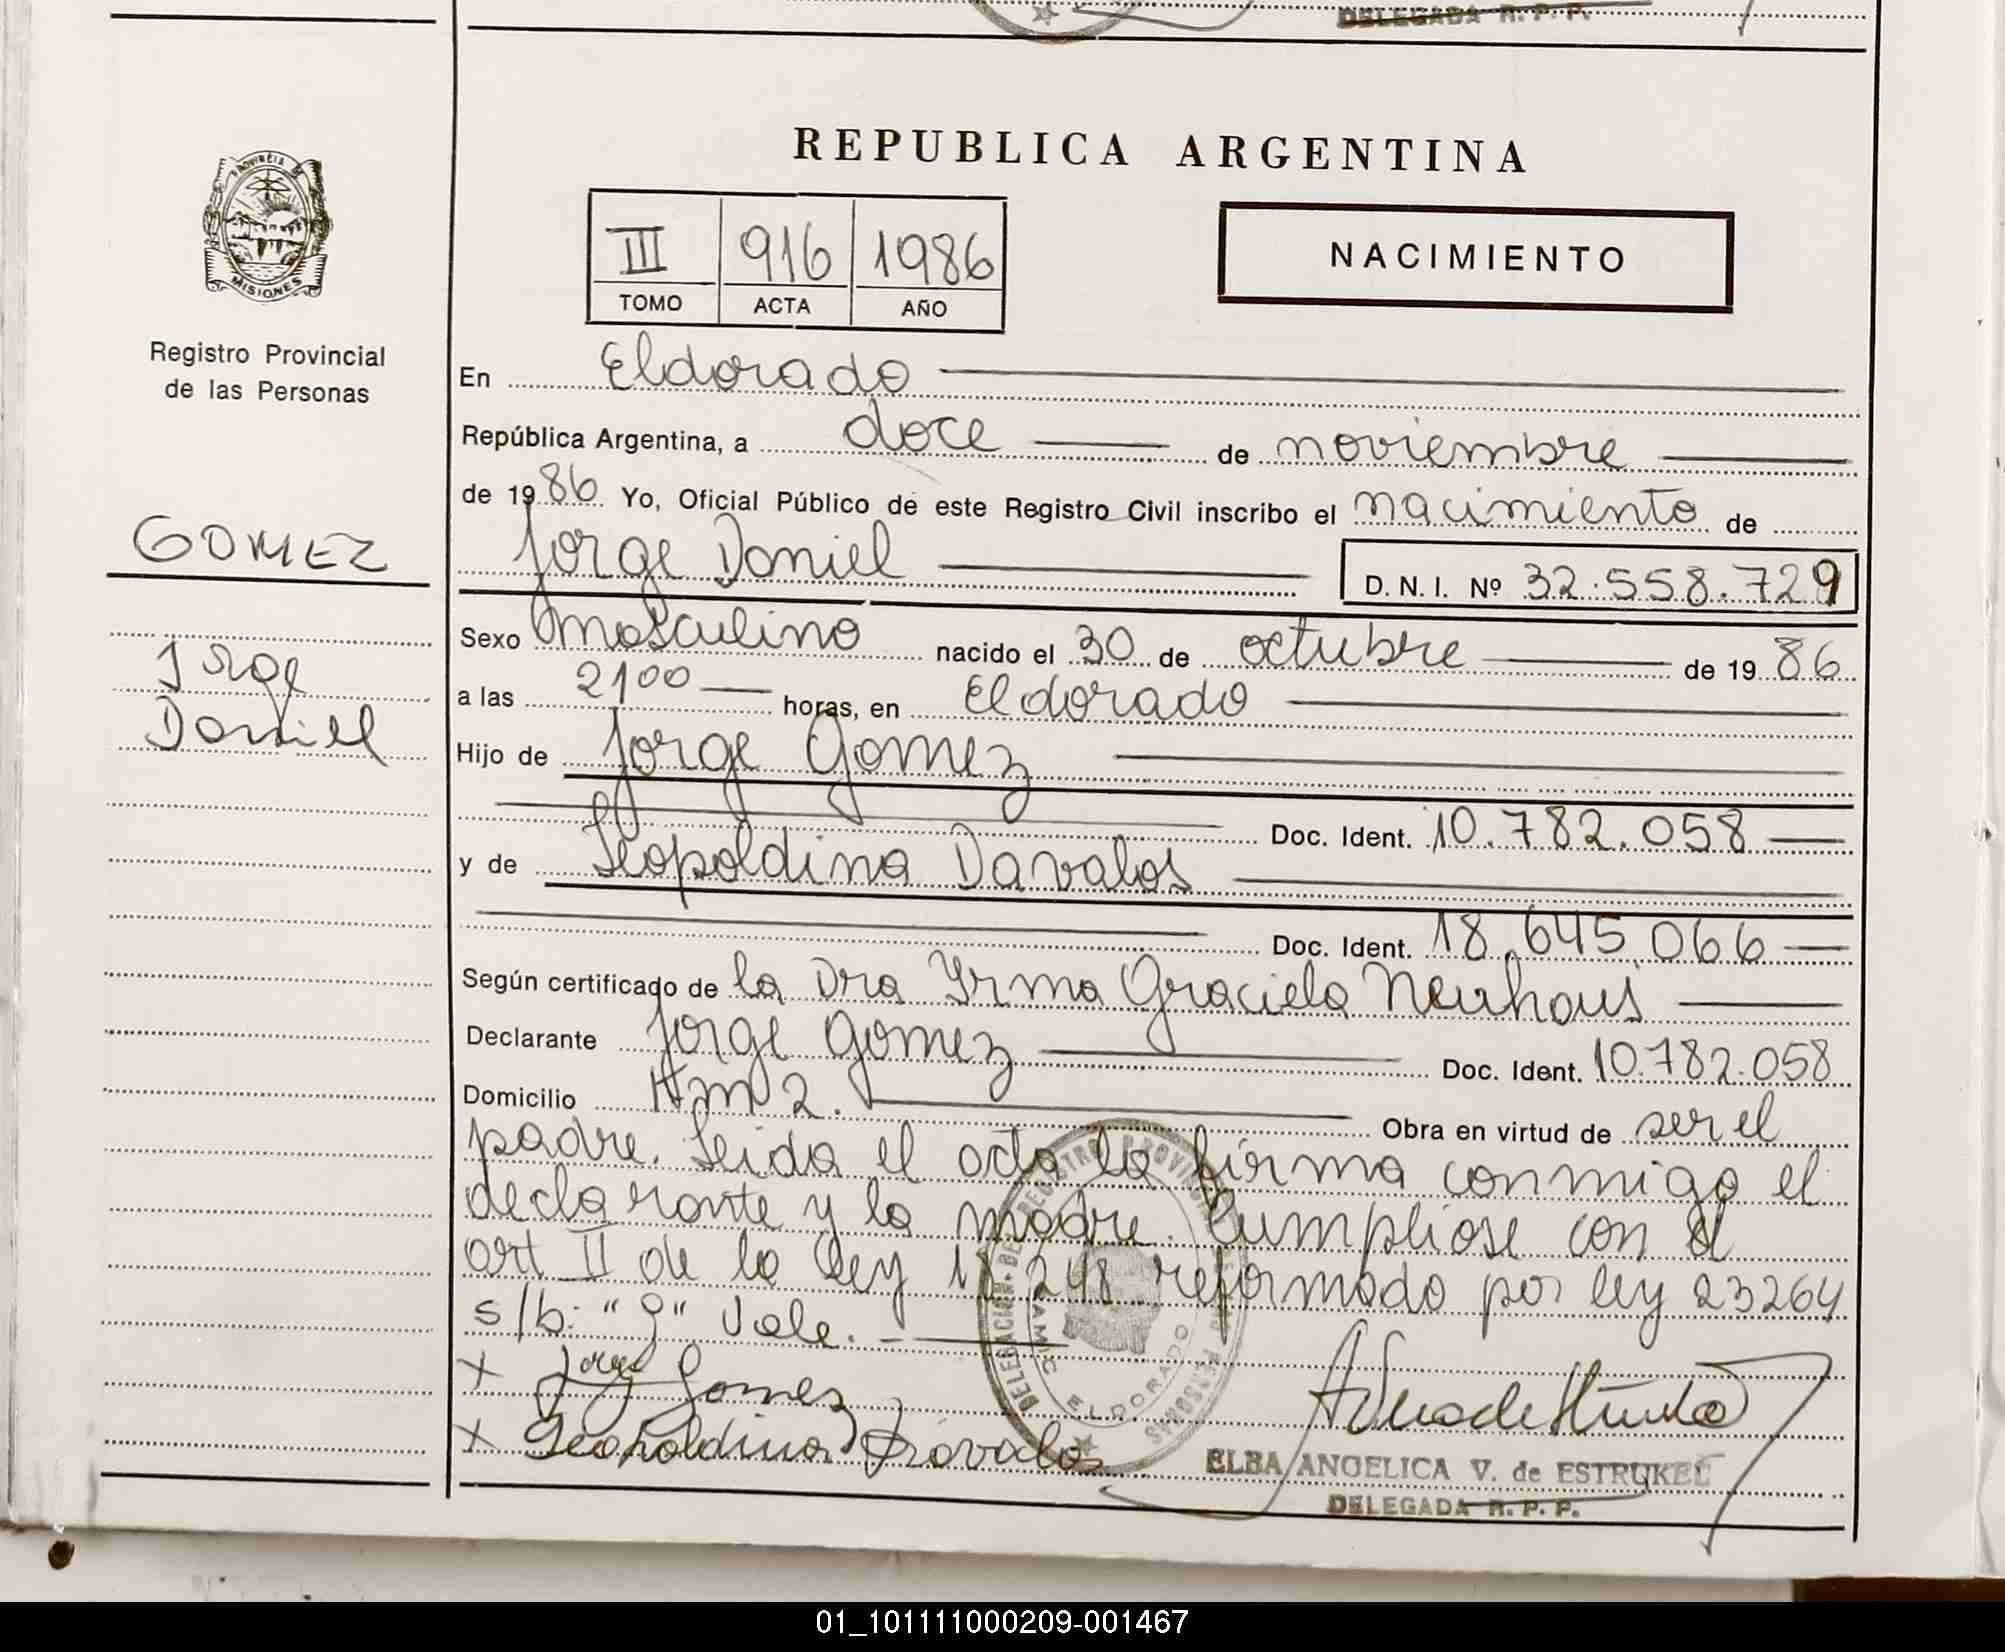 DELEGADA R. P. P.
REPUBLICA ARGENTINA
PROVINCIA DE
MISIONES
III 916 1986
TOMO ACTA AÑO
NACIMIENTO
Registro Provincial
de las Personas
En Eldorado
República Argentina, a doce de noviembre
de 1986 Yo, Oficial Público de este Registro Civil inscribo el nacimiento de
GOMEZ
Jorge Daniel D. N. I. Nº 32.558.729
Sexo masculino nacido el 30 de octubre de 1986
Jorge
a las 2100 horas, en Eldorado
Daniel
Hijo de Jorge Gomez
Doc. Ident. 10.782.058
y de Leopoldina Davalos
Doc. Ident. 18.645.066
Según certificado de la Dra Yrma Graciela Neuhaus
Declarante Jorge Gomez Doc. Ident. 10.782.058
Domicilio Km 2. Obra en virtud de ser el
padre. Leida el acta la firma conmigo el
declarante y la madre. Cumpliose con el
art II de la Ley 18.248 reformado por ley 23264
s/b: "9" Vale.
DELEGACION DEL REGISTRO PROVINCIAL DE LAS PERSONAS
ELDORADO
x Jorge Gomez
x Leopoldina Davalos
ELBA ANGELICA V. de ESTRUKEL
DELEGADA R. P. P.
01_101111000209-001467